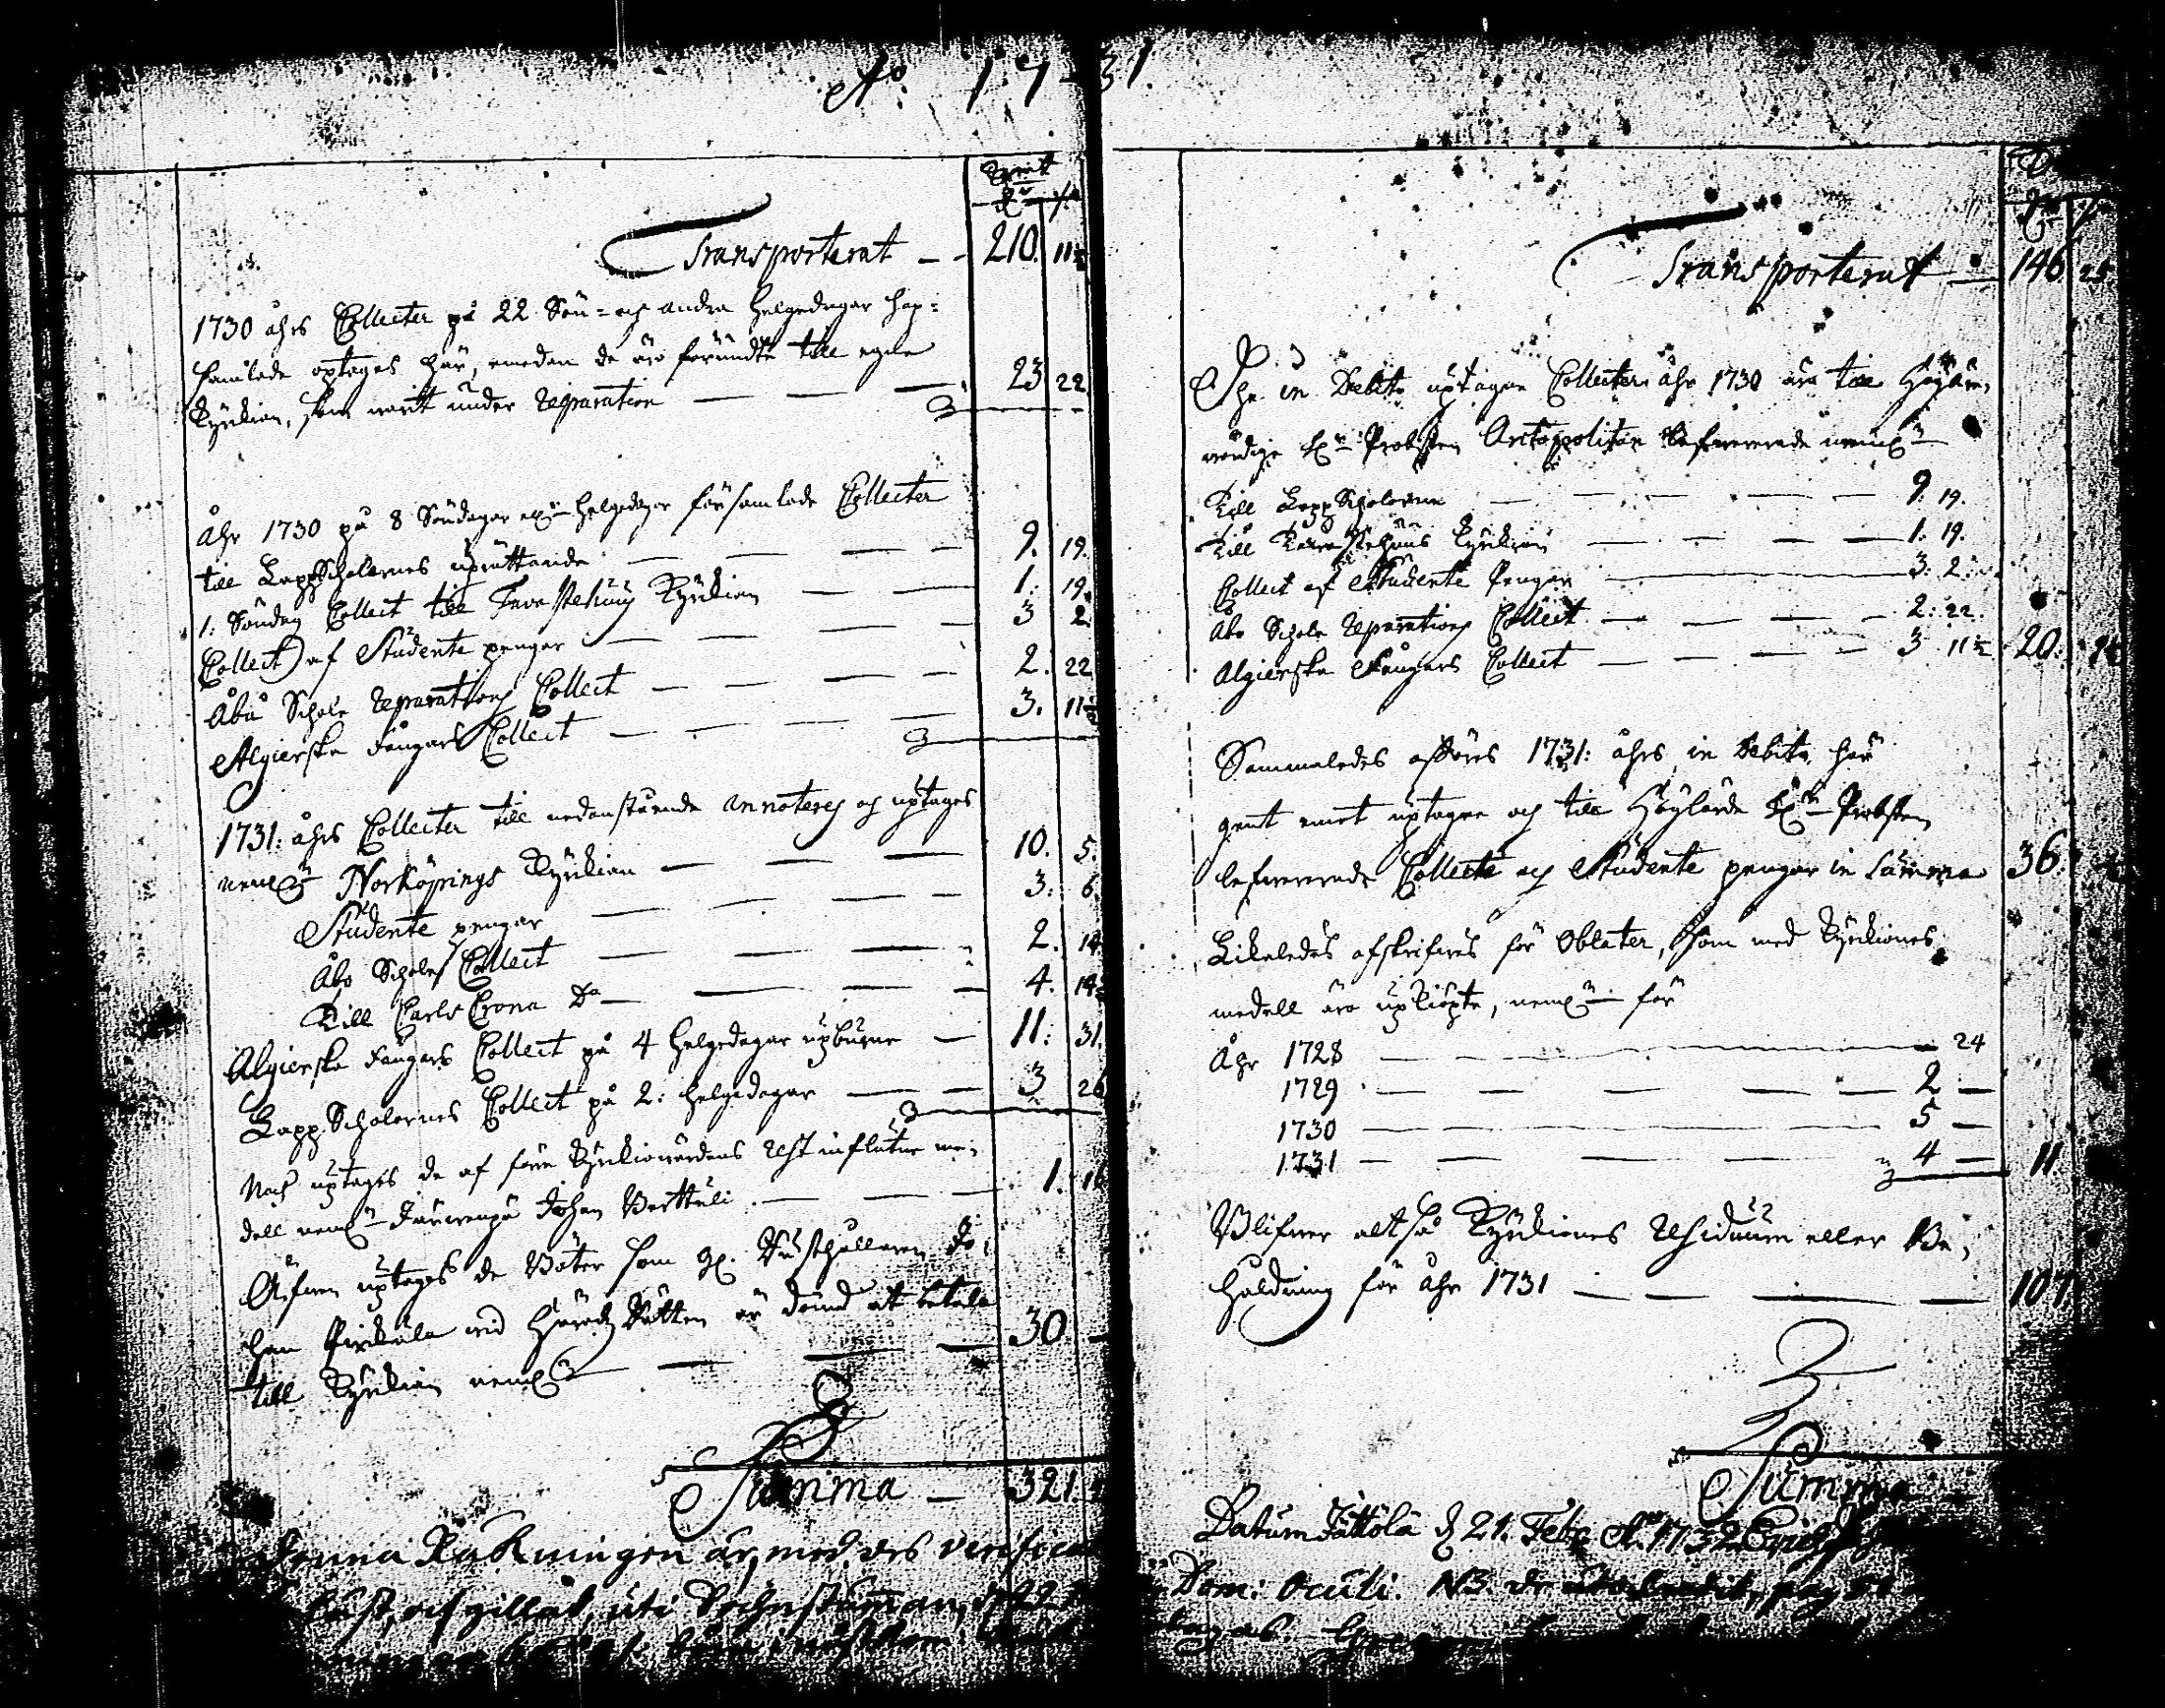 Ao: 17-31.
Transporterat — 210. 11½
1730 åhrs Collecter på 22 Sön- och andra helgedagar för-
samlade optages här, emedan de äro förundte till egne
Kyrkian, som warit under reparation — 23 22
Åhr 1730 på 8 Söndagar och helgedagar församlade Collecter
till LappScholernes uprättande — 9. 19.
1. Söndag Collect till Tavastehuus Kyrkian — 1. 19.
Collect af Studente pengar — 3 2.
Åbå Schole reparations Collect — 2. 22
Algierska Fångars Collect — 3. 11½
1731: åhrs Collecter till nedanstående annoteras och uptages
neml. Norköpings Kyrkian — 10. 5.
Studente pengar — 3. 6.
Åbo Scholes Collect — 2. 14
Till Carls Crona Do — 4. 14
Algierska Fångars Collect på 4 helgedagar upburne — 11: 31.
Lapp Scholernes Collect på 2: helgedagar — 3 26
Noch uptages de af förre Kyrkiowärdens rest influtne me-
dell neml. Johan Verttuli — 1. 16
Äfwen uptages de Böter som H. Jo-
han wid Härads Rätten är dömd at betala
till Kyrkian neml. — 30 —
Summa — 321.
Denna Räkningen är, med des verifica
läst, och gillad, uti Sochnstuman, 1732
Transporterat — 146. 25.
The in Debito uptagne Collecter åhr 1730 äro till Högähre-
wördige H. Probsten lefwererade neml.
Till Lapp Scholerne — 9. 19.
Till Tavastehuus Kyrkian — 1. 19.
Collect af Studente Pengar — 3. 2.
Åbo Schole reparations Collect — 2. 22.
Algierska Fångars Collect — 3 11½ 20.
Sammaledes afföres 1731: åhrs in Debito här
gent emot uptagne och till Höglärde H. Probsten
lefwererade Collecte och Studente pengar in Summa 36.
Likeledes afskrifwes för Oblater, som med Kyrkiones
medell äro upkiöpte, neml. för
Åhr 1728 — 24
1729 — 2 —
1730 — 5 —
1731 — 4 — 11.
Blifwer altså Kyrkiones Residuum eller Be-
hållning för åhr 1731 — 107.
Summa
Datum Jättölä d. 21. Febr. Ao. 1732
Dom: Oculi. NB.